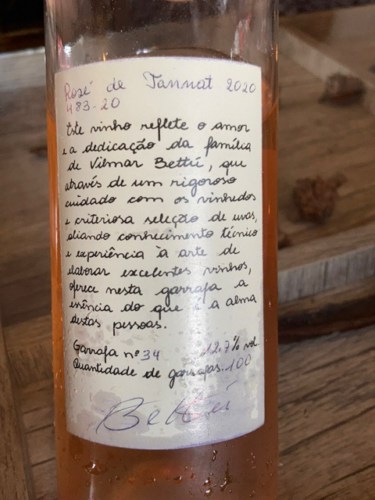 Rosé de Tannat 2020
483-20
Este vinho reflete o amor
e a dedicação da família
de Vilmar Bettú, que
através de um rigoroso
cuidado com os vinhedos
e criteriosa seleção de uvas,
aliando conhecimento técnico
e experiência à arte de
elaborar excelentes vinhos,
oferece nesta garrafa a
essência do que é a alma
destas pessoas.
Garrafa nº 34 12.7% vol
Quantidade de garrafas 100
Bettú